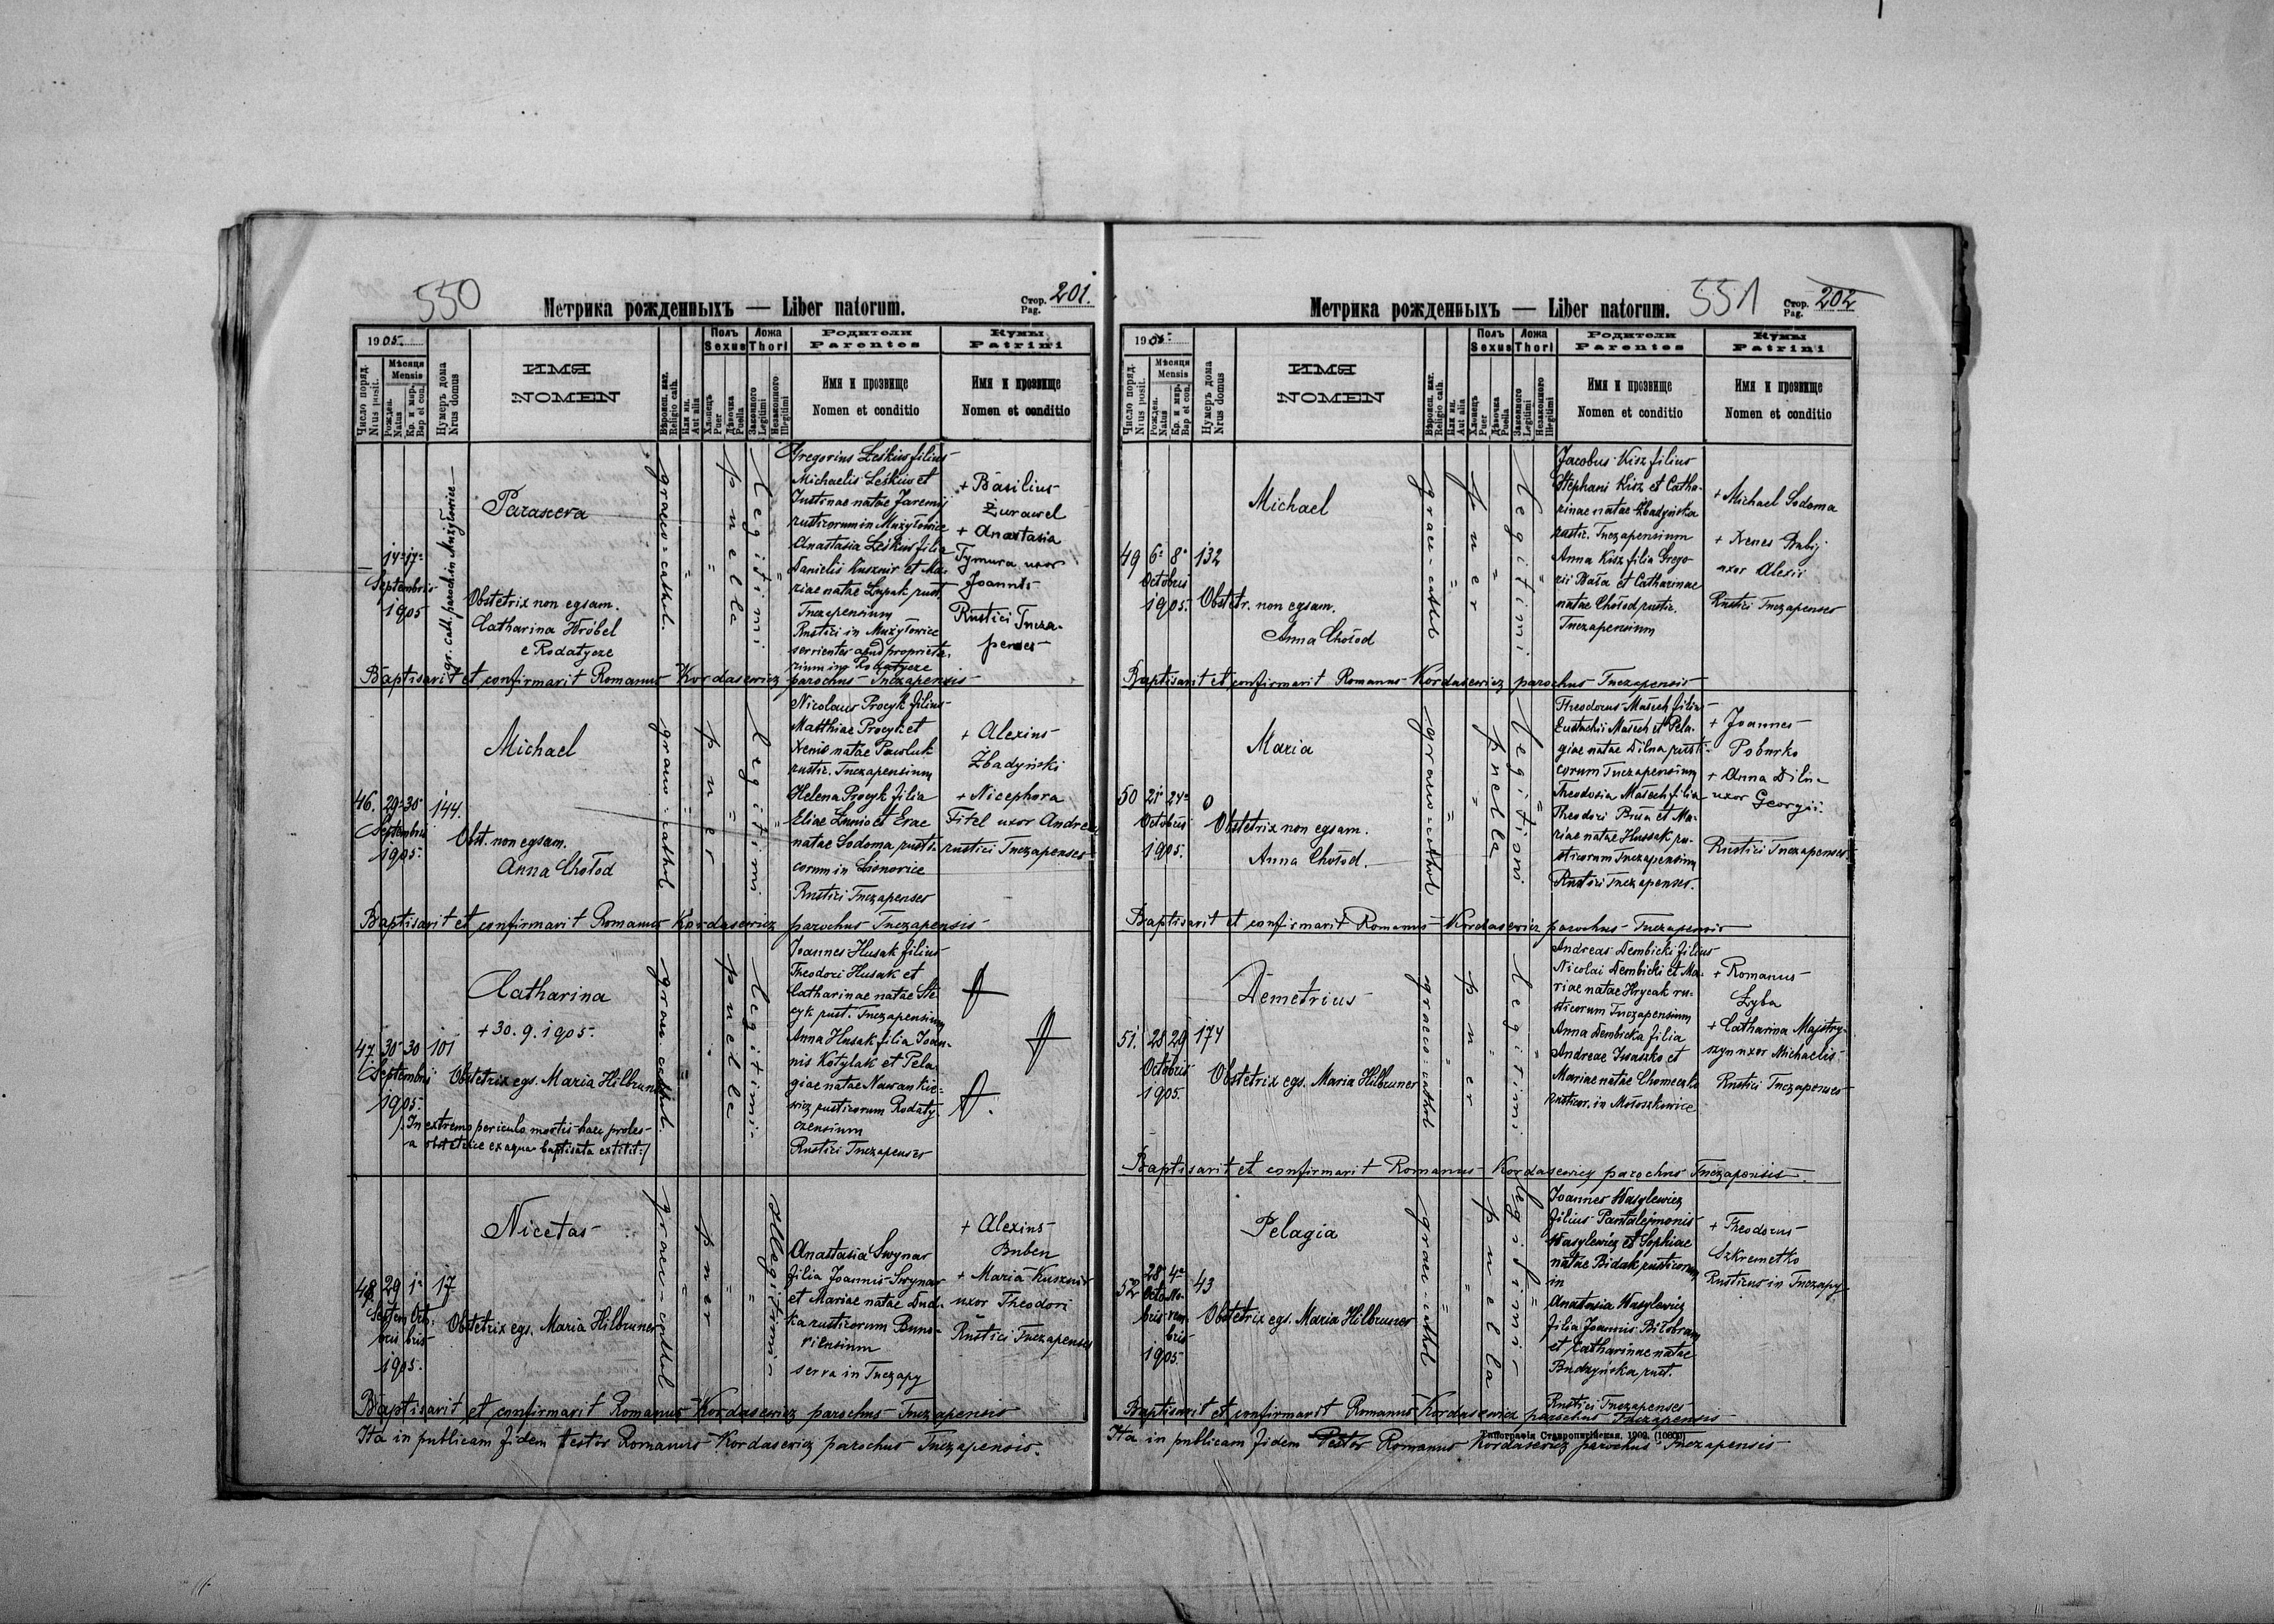 550
Метрика рожденныхъ — Liber natorum.
Стор. 201.
Pag.
1905
Число поряд.
Nrus posit.
Мѣсяця
Mensis
Рожден.
Natus
Кр. и мир.
Bap et con.
Нумеръ дома
Nrus domus
ИМЯ
NOMEN
Вѣроисп. кат.
Religio cath.
Или ин.
Aut alia
Полъ
Sexus
Хлопець
Puer
Дѣвочка
Puella
Ложа
Thori
Законного
Legitimi
Незаконного
Illegitimi
Родители
Parentes
Имя и прозвище
Nomen et conditio
Кумы
Patrini
Имя и прозвище
Nomen et conditio
14 17
Septembris
1905
gr. cath. paroch. in Mużyłowice
Parasceva
Obstetrix non egsam.
Catharina Wróbel
e Rodatycze
graeco-cathol.
puella
legitimi
Gregorius Leśkiw filius
Michaelis Leśkiw et
Justinae natae Jaremij
rusticorum in Mużyłowice
Anastasia Leśkiw filia
Danielis Kusznir et Ma-
riae natae Łypak rust.
Tuczapensium
Rustici in Mużyłowice
servientes apud proprieta-
rium in Rodatycze
+ Basilius
Żurawel
+ Anastasia
Tymura uxor
Joannis
Rustici Tucza-
penses
Baptisavit et confirmavit Romanus Kordasewicz parochus Tuczapensis
46. 29 30 144.
Septembris
1905.
Michael
Obst. non egsam.
Anna Chołod
graeco-cathol
puer
legitimi
Nicolaus Procyk filius
Matthiae Procyk et
Xeniae natae Pawluk
rustic. Tuczapensium
Helena Procyk filia
Eliae Łunio et Evae
natae Sodoma rusti-
corum in
Rustici Tuczapenses
+ Alexius
Żbadyński
+ Nicephora
Fitel uxor Andreae
rustici Tuczapenses
Baptisavit et confirmavit Romanus Kordasewicz parochus Tuczapensis
47. 30 30 101
Septembris
1905.
Catharina
+ 30. 9. 1905.
Obstetrix egs. Maria Hilbruner
/: In extremo periculo mortis haec proles
a obstetrice ex aqua baptisata extitit :/
graeco cathol.
puella
legitimi
Joannes Husak filius
Theodori Husak et
Catharinae natae Ste
cyk rust. Tuczapensium
Anna Husak filia Joan-
nis Kotylak et Pela-
giae natae Nawankie-
wicz rusticorum Rodaty
czensium
Rustici Tuczapenses
48. 29 1 17
Septem Octo-
bris bris
1905.
Nicetas
Obstetrix egs. Maria Hilbruner
graeco-cathol
puer
illegitimi
Anastasia Swynar
filia Joannis Swynar
et Mariae natae Dud-
ka rusticorum Buno-
viensium
serva in Tuczapy
+ Alexius
Buben
+ Maria Kusznir
uxor Theodori
Rustici Tuczapenses
Baptisavit et confirmavit Romanus Kordasewicz parochus Tuczapensis
Ita in publicam fidem testor Romanus Kordasewicz parochus Tuczapensis.
Метрика рожденныхъ — Liber natorum.
551
Стор. 202
Pag.
1905
Число поряд.
Nrus posit.
Мѣсяця
Mensis
Рожден.
Natus
Кр. и мир.
Bap et con.
Нумеръ дома
Nrus domus
ИМЯ
NOMEN
Вѣроисп. кат.
Religio cath.
Или ин.
Aut alia
Полъ
Sexus
Хлопець
Puer
Дѣвочка
Puella
Ложа
Thori
Законного
Legitimi
Незаконного
Illegitimi
Родители
Parentes
Имя и прозвище
Nomen et conditio
Кумы
Patrini
Имя и прозвище
Nomen et conditio
49 6 8 132
Octobris
1905.
Michael
Obstetr. non egsam.
Anna Chołod
graeco-cathol
puer
legitimi
Jacobus Kisz filius
Stephani Kisz et Catha-
rinae natae Żbadyńska
rustic. Tuczapensium
Anna Kisz filia Grego-
rii Bała et Catharinae
natae Chołod rustic.
Tuczapensium
+ Michael Sodoma
+ Xenes Babij
uxor Alexii
Rustici Tuczapenses
Baptisavit et confirmavit Romanus Kordasewicz parochus Tuczapensis
50 21 24 0
Octobris
1905.
Maria
Obstetrix non egsam.
Anna Chołod.
graeco-cathol
puella
legitimi
Theodorus Małech filius
Eustachii Małech et Pela-
giae natae Dilna rusti-
corum Tuczapensium
Theodosia Małech filia
Theodori Busa et Ma-
riae natae Hussak ru-
sticorum Tuczapensium
Rustici Tuczapenses.
+ Joannes
Poburko
+ Anna Dilna
uxor Georgii.
Rustici Tuczapenses
Baptisavit et confirmavit Romanus Kordasewicz parochus Tuczapensis
51. 28 29 174
Octobris
1905.
Demetrius
Obstetrix egs. Maria Hilbruner
graeco-cathol
puer
legitimi
Andreas Dembicki filius
Nicolai Dembicki et Ma-
riae natae Hrycak ru-
sticorum Tuczapensium
Anna Dembicka filia
Andreae Iwaszko et
Mariae natae Chomeczko
rusticor. in Mołoszkowice
+ Romanus
Zyba
+ Catharina Majstry-
szyn uxor Michaelis
Rustici Tuczapenses
Baptisavit et confirmavit Romanus Kordasewicz parochus Tuczapensis
52 28 4 43
Octo- No-
bris vem
bris
1905.
Pelagia
Obstetrix egs. Maria Hilbruner
graeco-cathol
puella
legitimi
Joannes Wasylewicz
filius Pantalejmonis
Wasylewicz et Sophiae
natae Bidak rusticorum
in
Anastasia Wasylewicz
filia Joannis Biłobram
et Catharinae natae
Budzyńska rust.
Rustici Tuczapenses
+ Theodorus
Szkremetko
Rusticus in Tuczapy
Baptisavit et confirmavit Romanus Kordasewicz parochus Tuczapensis
Типографія Ставропигійская. 1902. (10000)
Ita in publicam fidem testor Romanus Kordasewicz parochus Tuczapensis